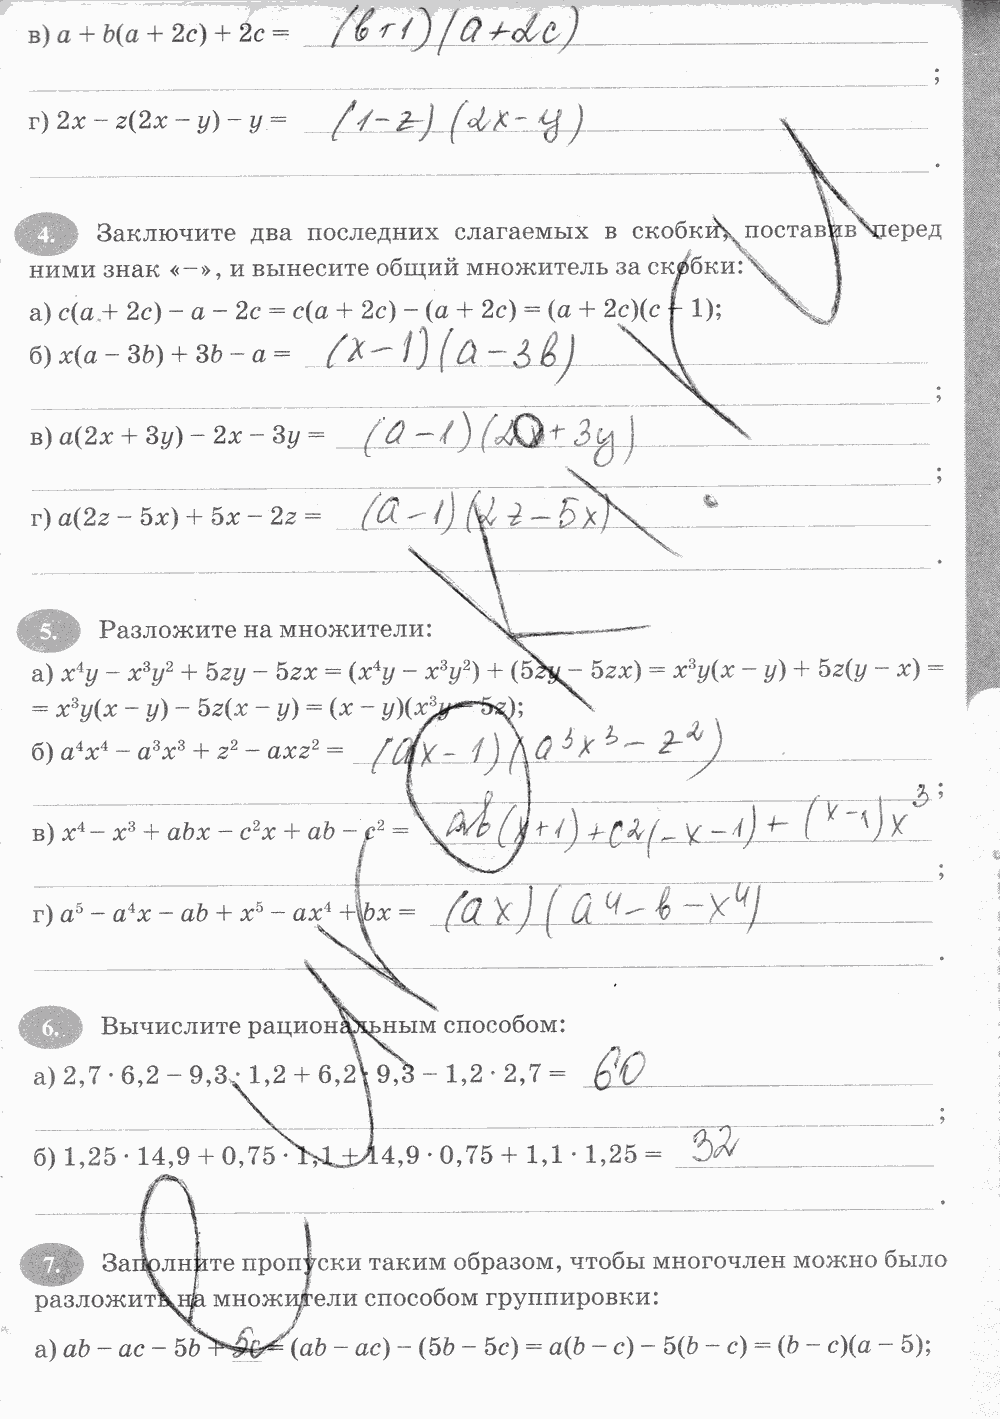 в) a + b(a + 2c) + 2c = (b+1)(a+2c)
;
г) 2x − z(2x − y) − y = (1−z)(2x−y)
.
4. Заключите два последних слагаемых в скобки, поставив перед
ними знак «−», и вынесите общий множитель за скобки:
а) c(a + 2c) − a − 2c = c(a + 2c) − (a + 2c) = (a + 2c)(c − 1);
б) x(a − 3b) + 3b − a = (x−1)(a−3b)
;
в) a(2x + 3y) − 2x − 3y = (a−1)(2x+3y)
;
г) a(2z − 5x) + 5x − 2z = (a−1)(2z−5x)
.
5. Разложите на множители:
а) x⁴y − x³y² + 5zy − 5zx = (x⁴y − x³y²) + (5zy − 5zx) = x³y(x − y) + 5z(y − x) =
= x³y(x − y) − 5z(x − y) = (x − y)(x³y − 5z);
б) a⁴x⁴ − a³x³ + z² − axz² = (ax−1)(a³x³−z²)
;
в) x⁴ − x³ + abx − c²x + ab − c² = ab(x+1)+c2(−x−1)+(x−1)x³
;
г) a⁵ − a⁴x − ab + x⁵ − ax⁴ + bx = (ax)(a4−b−x4)
.
6. Вычислите рациональным способом:
а) 2,7 · 6,2 − 9,3 · 1,2 + 6,2 · 9,3 − 1,2 · 2,7 = 60
;
б) 1,25 · 14,9 + 0,75 · 1,1 + 14,9 · 0,75 + 1,1 · 1,25 = 32
.
7. Заполните пропуски таким образом, чтобы многочлен можно было
разложить на множители способом группировки:
а) ab − ac − 5b + 5c = (ab − ac) − (5b − 5c) = a(b − c) − 5(b − c) = (b − c)(a − 5);